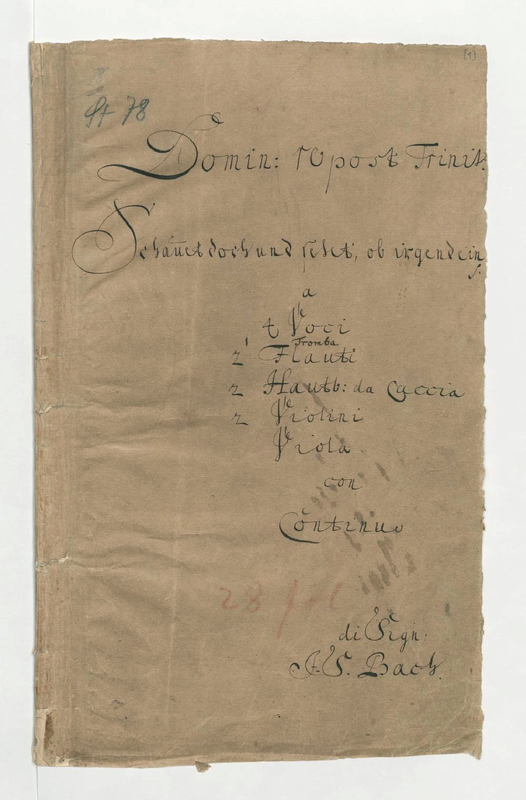 (1)
St 78
Domin: 10 post Trinit:
Schauet doch und sehet, ob irgend ein
a
4 Voci
1 Tromba
2 Flauti
2 Hautb: da Caccia
2 Violini
Viola
con
Continuo
28 fol
di Sign:
J. S. Bach.